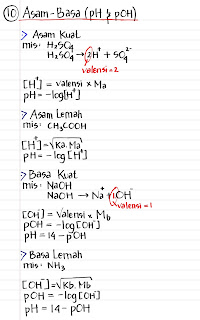 10 Asam-Basa (pH & pOH)
> Asam Kuat
mis: H₂SO₄
H₂SO₄ → 2H⁺ + SO₄²⁻
valensi = 2
[H⁺] = valensi x Ma
pH = -log[H⁺]
> Asam Lemah
mis: CH₃COOH
[H⁺] = √Ka.Ma
pH = -log [H⁺]
> Basa Kuat
mis: NaOH
NaOH → Na⁺ + 1OH⁻
valensi = 1
[OH⁻] = valensi x Mb
pOH = -log[OH⁻]
pH = 14 - pOH
> Basa Lemah
mis: NH₃
[OH⁻] = √Kb.Mb
pOH = -log[OH⁻]
pH = 14 - pOH